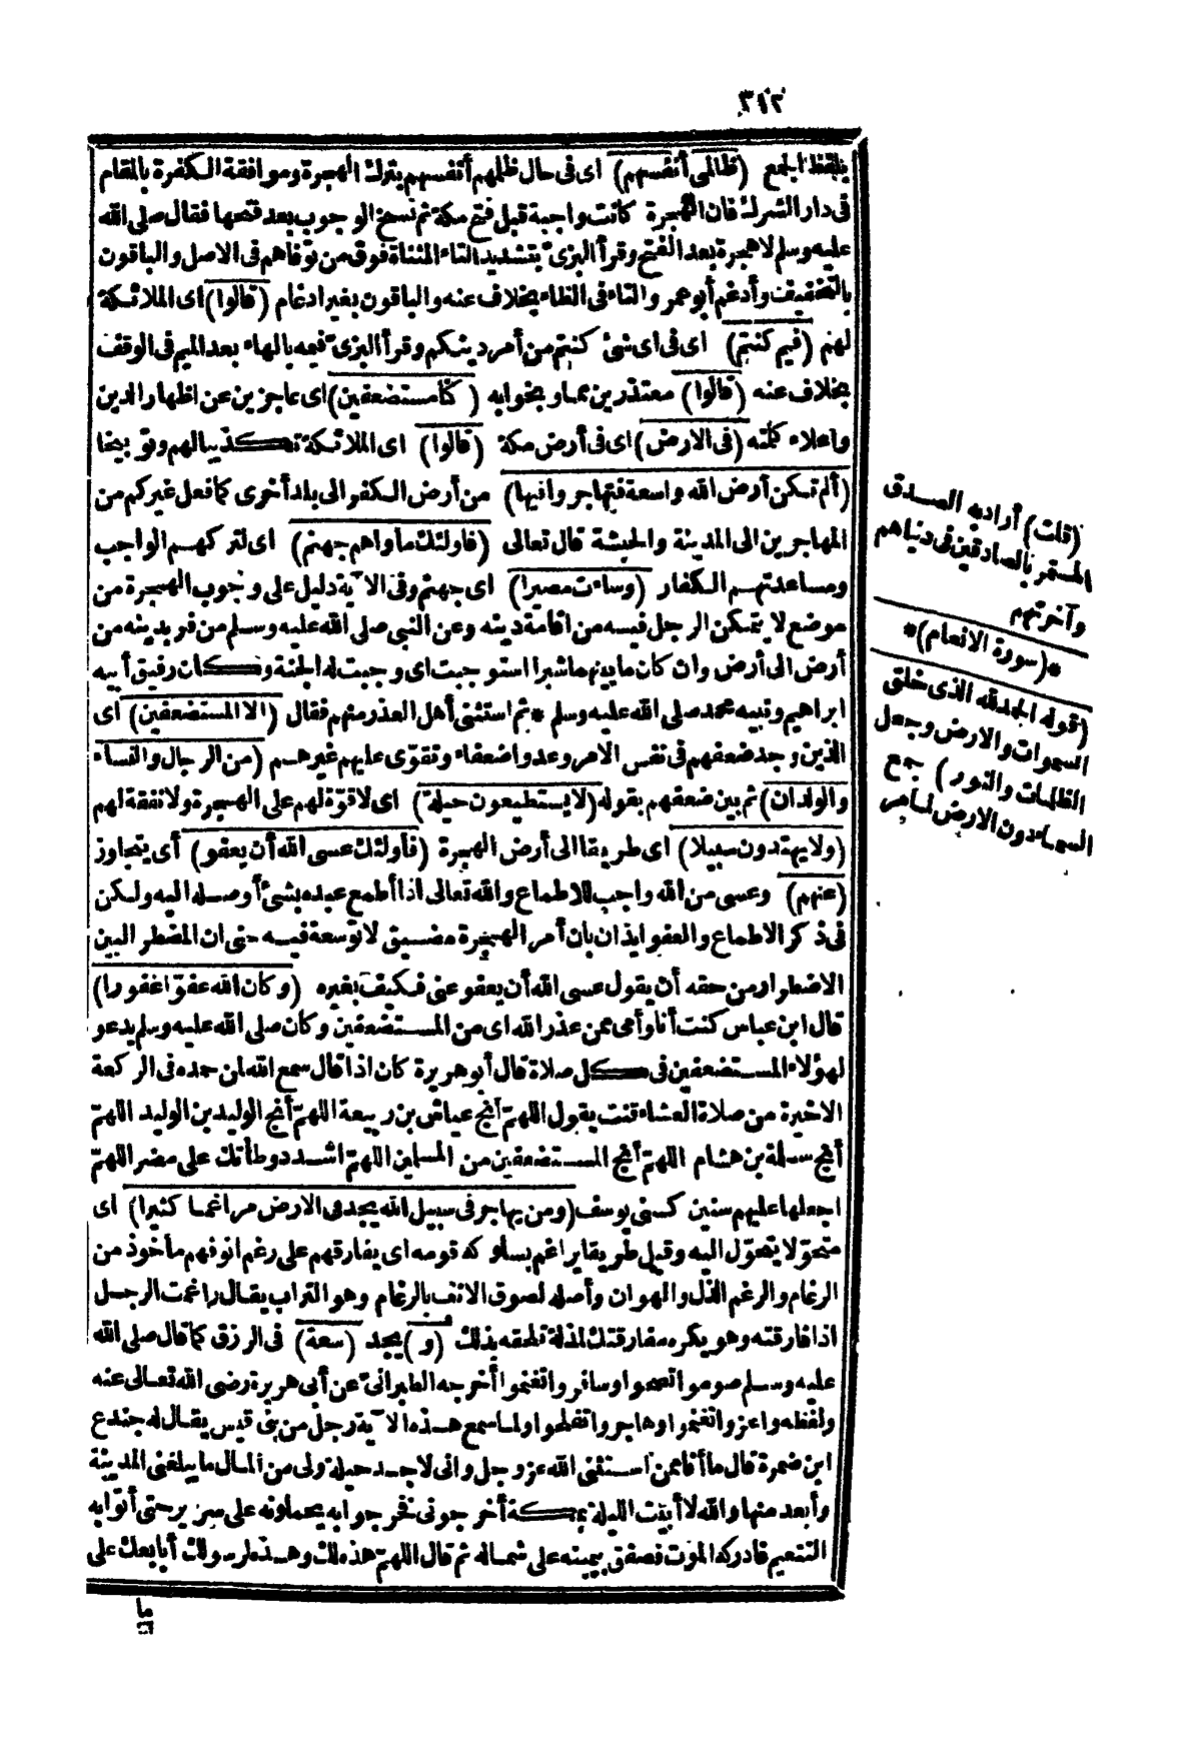 ٣١٢
بلفظ الجمع (ظالمى أنفسهم) اى فى حال ظلمهم أنفسهم بترك الهجرة وموافقة الكفرة بالمقام
فى دار الشرك فان الهجرة كانت واجبة قبل فتح مكة ثم نسخ الوجوب بعد فتحها فقال صلى الله
عليه وسلم لا هجرة بعد الفتح وقرأ البزىّ بتشديد التاء المثناة فوق من توفاهم فى الاصل والباقون
بالتخفيف وأدغم أبو عمرو التاء فى الظاء بخلاف عنه والباقون بغير ادغام (قالوا) اى الملائكة
لهم (فيم كنتم) اى فى اى شئ كنتم من أمر دينكم وقرأ البزىّ فيمه بالهاء بعد الميم فى الوقف
بخلاف عنه (قالوا) معتذرين مما وبخوا به (كنا مستضعفين) اى عاجزين عن اظهار الدين
واعلاء كلمته (فى الارض) اى فى أرض مكة (قالوا) اى الملائكة تكذيبا لهم وتوبيخا
(ألم تكن أرض الله واسعة فتهاجروا فيها) من أرض الكفر الى بلد أخرى كما فعل غيركم من
المهاجرين الى المدينة والحبشة قال تعالى (فاولئك مأواهم جهنم) اى لتركهم الواجب
ومساعدتهم الكفار (وساءت مصيرا) اى جهنم وفى الآية دليل على وجوب الهجرة من
موضع لا يتمكن الرجل فيه من اقامة دينه وعن النبى صلى الله عليه وسلم من فر بدينه من
أرض الى أرض وان كان ما بينهما شبرا استوجبت اى وجبت له الجنة وكان رفيق أبيه
ابراهيم ونبيه محمد صلى الله عليه وسلم * ثم استثنى أهل العذر منهم فقال (الا المستضعفين) اى
الذين وجد ضعفهم فى نفس الامر وعدوا ضعفاء وتقوّى عليهم غيرهم (من الرجال والنساء
والولدان) ثم بين ضعفهم بقوله (لا يستطيعون حيلة) اى لا قوّة لهم على الهجرة ولا نفقة لهم
(ولا يهتدون سبيلا) اى طريقا الى أرض الهجرة (فأولئك عسى الله أن يعفو) أى يتجاوز
(عنهم) وعسى من الله واجب للاطماع والله تعالى اذا أطمع عبده بشئ أوصله اليه ولكن
فى ذكر الاطماع والعفو ايذان بان أمر الهجرة مضيق لا توسعة فيه حتى ان المضطر البين
الاضطرار من حقه أن يقول عسى الله أن يعفو عنى فكيف بغيره (وكان الله عفوّا غفورا)
قال ابن عباس كنت أنا وأمى ممن عذر الله اى من المستضعفين وكان صلى الله عليه وسلم يدعو
لهؤلاء المستضعفين فى كل صلاة قال أبو هريرة كان اذا قال سمع الله لمن حمده فى الركعة
الاخيرة من صلاة العشاء قنت يقول اللهمّ أنج عياش بن ربيعة اللهمّ أنج الوليد بن الوليد اللهمّ
أنج سلمة بن هشام اللهمّ أنج المستضعفين من المسلمين اللهمّ اشدد وطأتك على مضر اللهمّ
اجعلها عليهم سنين كسنى يوسف (ومن يهاجر فى سبيل الله يجد فى الارض مراغما كثيرا) اى
متحوّلا يتحوّل اليه وقيل طريقا يراغم بسلوكه قومه اى يفارقهم على رغم انوفهم مأخوذ من
الرغام والرغم الذل والهوان وأصله لصوق الانف بالرغام وهو التراب يقال راغمت الرجل
اذا فارقته وهو يكره مفارقتك لمذلة تلحقه بذلك (و) يجد (سعة) فى الرزق كما قال صلى الله
عليه وسلم صوموا تصحوا وسافروا تغنموا أخرجه الطبرانىّ عن أبى هريرة رضى الله تعالى عنه
ولفظه واغزوا تغنموا وهاجروا تفلحوا ولما سمع هذه الآية رجل من بنى قيس يقال له جندع
ابن ضمرة قال ما أنا ممن استثنى الله عز وجل وانى لاجد حيلة ولى من المال ما يبلغنى المدينة
وأبعد منها والله لا أبيت الليلة بمكة أخرجونى فخرجوا به يحملونه على سرير حتى أتوا به
التنعيم فادركه الموت فصفق بيمينه على شماله ثم قال اللهمّ هذه لك وهذه لرسولك أبايعك على
ما
(قلت) أراد به الصدق
المستمر بالصادقين فى دنياهم
وآخرتهم
*(سورة الانعام)*
(قوله الحمد لله الذى خلق
السموات والارض وجعل
الظلمات والنور) جمع
السماء دون الارض لما مر